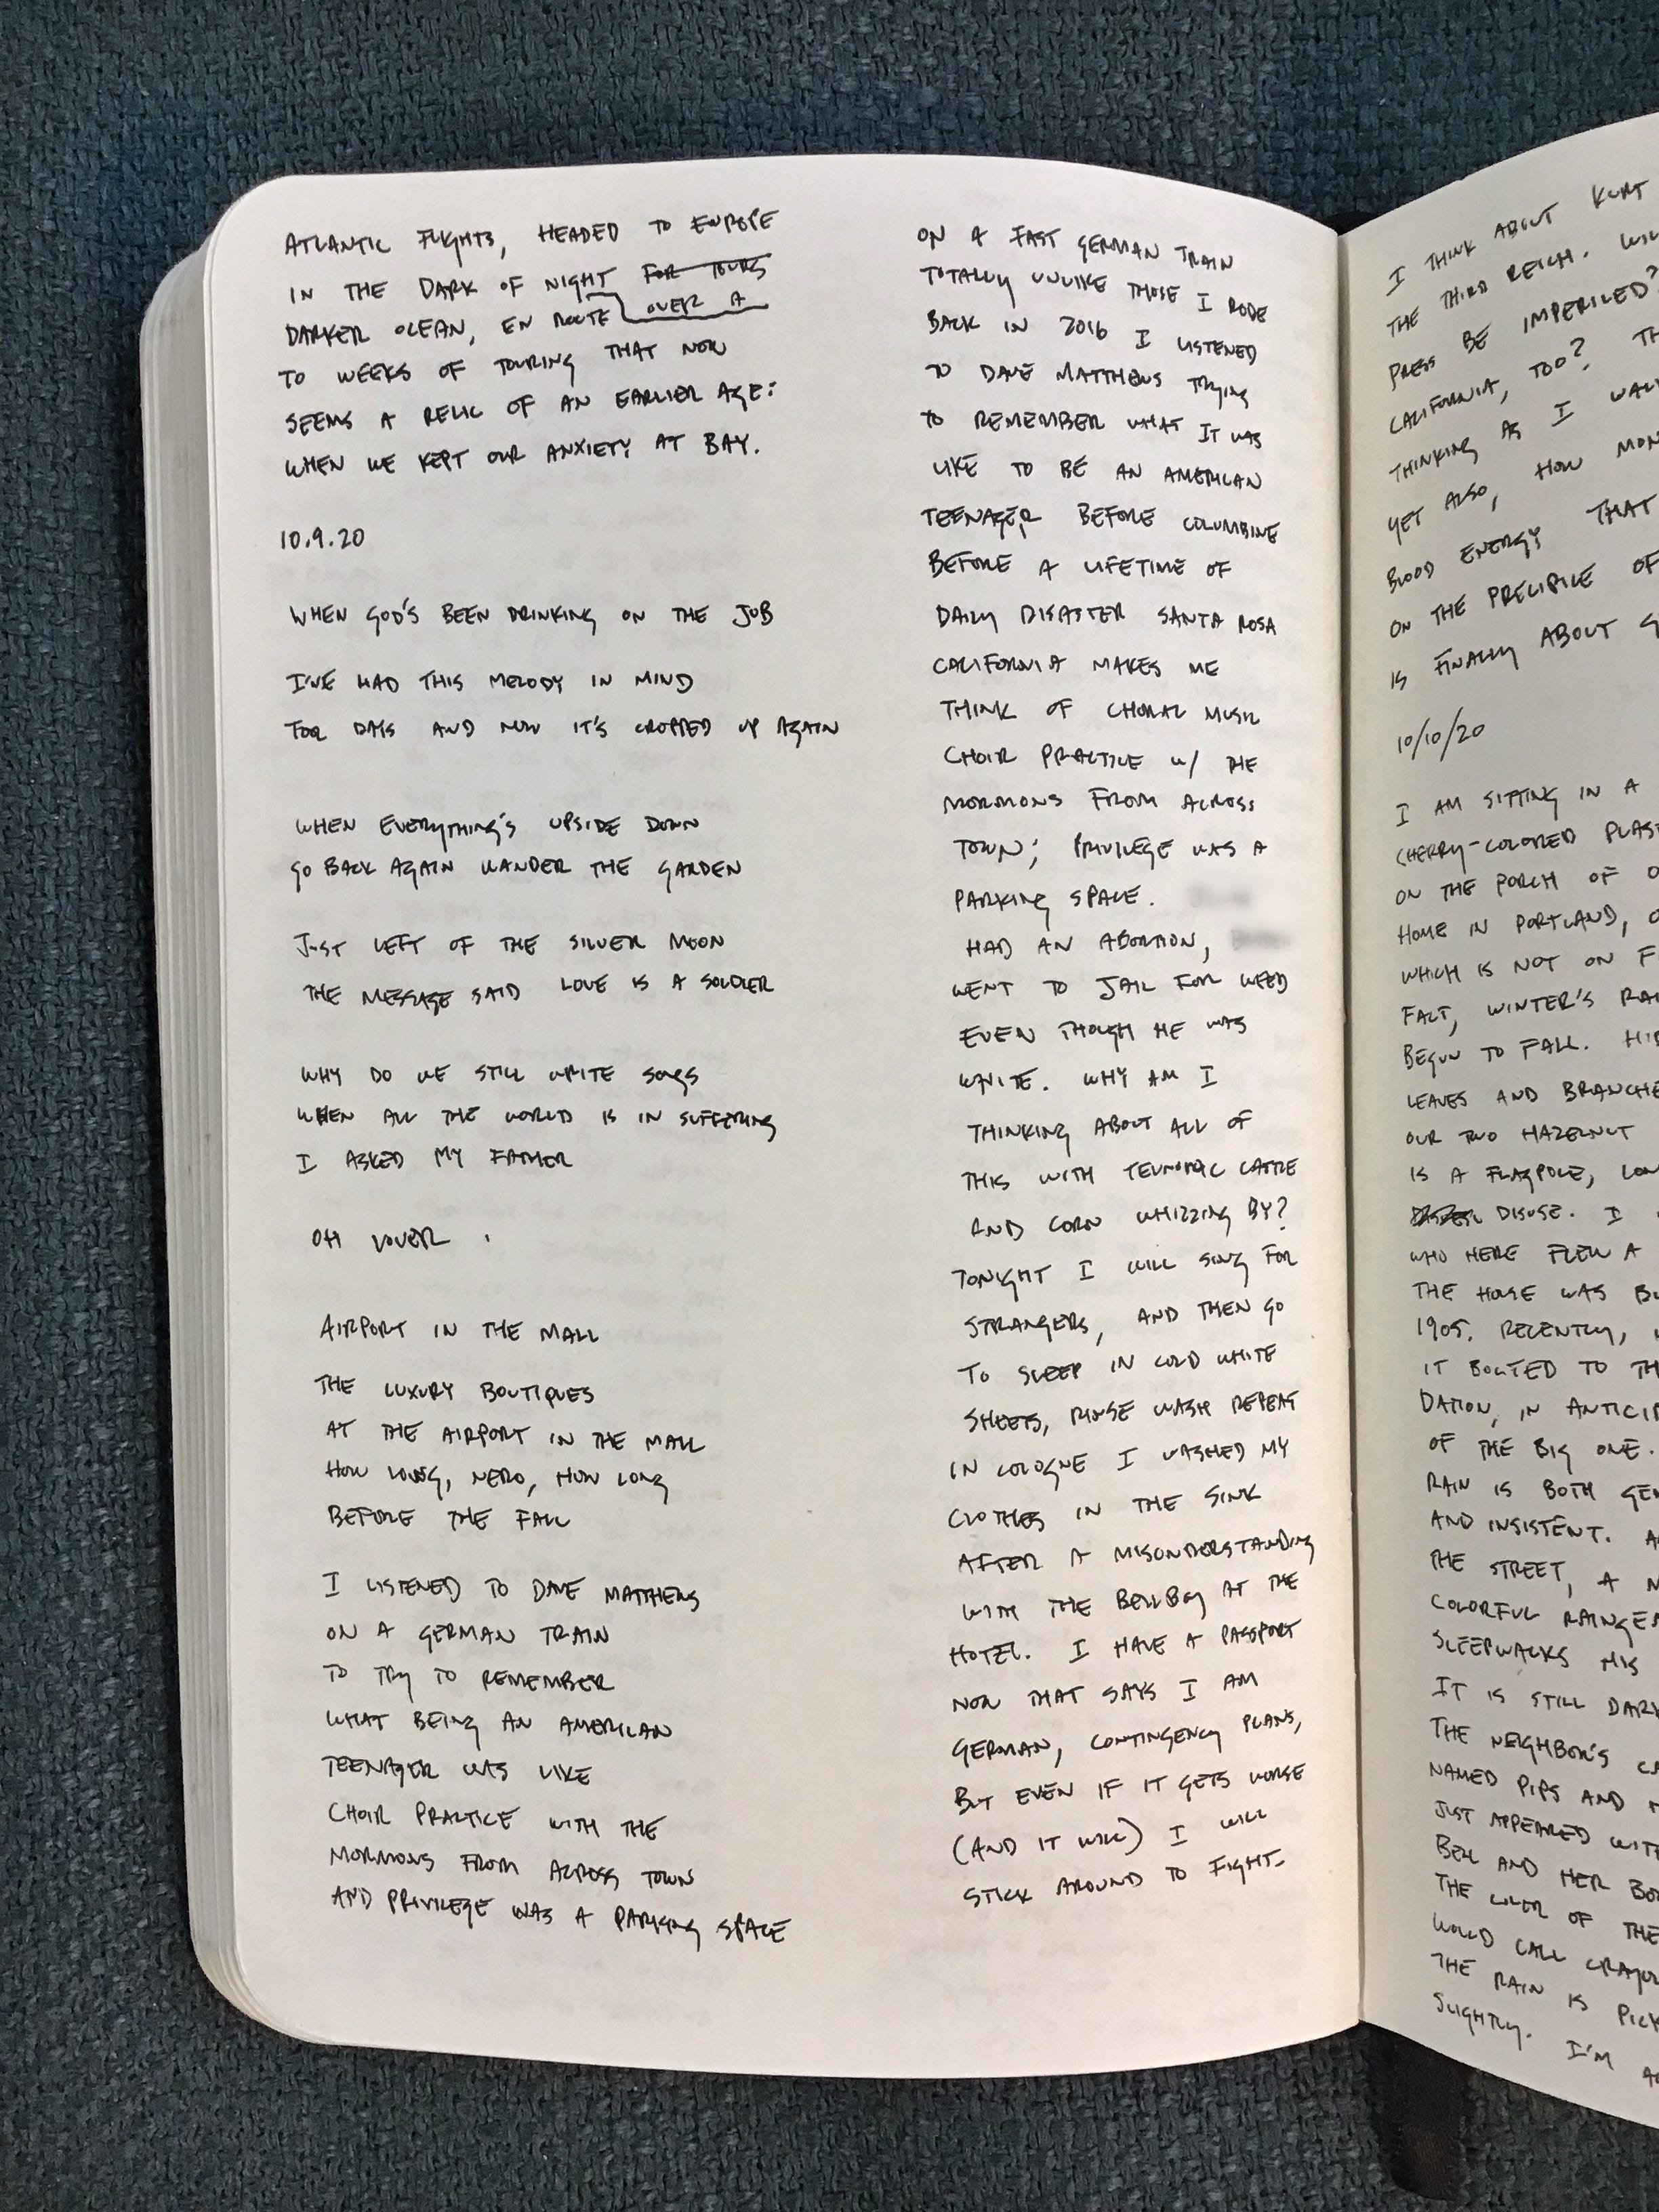 ATLANTIC FLIGHTS, HEADED TO EUROPE
IN THE DARK OF NIGHT FOR TOURS
OVER A
DARKER OCEAN, EN ROUTE
TO WEEKS OF TOURING THAT NOW
SEEMS A RELIC OF AN EARLIER AGE:
WHEN WE KEPT OUR ANXIETY AT BAY.
10.9.20
WHEN GOD'S BEEN DRINKING ON THE JOB
I'VE HAD THIS MELODY IN MIND
FOR DAYS AND NOW IT'S CROPPED UP AGAIN
WHEN EVERYTHING'S UPSIDE DOWN
GO BACK AGAIN WANDER THE GARDEN
JUST LEFT OF THE SILVER MOON
THE MESSAGE SAID LOVE IS A SOLDIER
WHY DO WE STILL WRITE SONGS
WHEN ALL THE WORLD IS IN SUFFERING
I ASKED MY FATHER
OH LOVER .
AIRPORT IN THE MALL
THE LUXURY BOUTIQUES
AT THE AIRPORT IN THE MALL
HOW LONG, NERO, HOW LONG
BEFORE THE FALL
I LISTENED TO DAVE MATTHEWS
ON A GERMAN TRAIN
TO TRY TO REMEMBER
WHAT BEING AN AMERICAN
TEENAGER WAS LIKE
CHOIR PRACTICE WITH THE
MORMONS FROM ACROSS TOWN
AND PRIVILEGE WAS A PARKING SPACE
ON A FAST GERMAN TRAIN
TOTALLY UNLIKE THOSE I RODE
BACK IN 2016 I LISTENED
TO DAVE MATTHEWS TRYING
TO REMEMBER WHAT IT WAS
LIKE TO BE AN AMERICAN
TEENAGER BEFORE COLUMBINE
BEFORE A LIFETIME OF
DAILY DISASTER SANTA ROSA
CALIFORNIA MAKES ME
THINK OF CHORAL MUSIC
CHOIR PRACTICE W/ THE
MORMONS FROM ACROSS
TOWN; PRIVILEGE WAS A
PARKING SPACE.
HAD AN ABORTION,
WENT TO JAIL FOR WEED
EVEN THOUGH HE WAS
WHITE. WHY AM I
THINKING ABOUT ALL OF
THIS WITH TEUTONIC CATTLE
AND CORN WHIZZING BY?
TONIGHT I WILL SING FOR
STRANGERS, AND THEN GO
TO SLEEP IN COLD WHITE
SHEETS, RINSE WASH REPEAT
IN COLOGNE I WASHED MY
CLOTHES IN THE SINK
AFTER A MISUNDERSTANDING
WITH THE BELLBOY AT THE
HOTEL. I HAVE A PASSPORT
NOW THAT SAYS I AM
GERMAN, CONTINGENCY PLANS,
BUT EVEN IF IT GETS WORSE
(AND IT WILL) I WILL
STICK AROUND TO FIGHT.
I THINK ABOUT KURT
THE THIRD REICH.
PRESS BE IMPERILED?
CALIFORNIA, TOO?
THINKING AS I
YET ALSO, HOW
BLOOD ENERGY THAT
ON THE PRECIPICE OF
IS FINALLY ABOUT
10/10/20
I AM SITTING IN A
CHERRY-COLORED
ON THE PORCH OF
HOME IN PORTLAND,
WHICH IS NOT ON
FACT, WINTER'S
BEGUN TO FALL.
LEAVES AND
OUR TWO HAZELNUT
IS A FLAGPOLE,
DISUSE. I
WHO HERE FLEW A
THE HOUSE WAS
1905. RECENTLY,
IT BOLTED TO
DATION, IN
OF THE BIG ONE.
RAIN IS BOTH
AND INSISTENT.
THE STREET, A
COLORFUL
SLEEPWALKS HIS
IT IS STILL
THE NEIGHBOR'S
NAMED PIPS AND
JUST APPEARED
BELL AND HER
THE COLOR OF THE
WOULD CALL
THE RAIN IS
SLIGHTLY. I'M